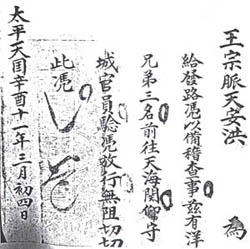 王宗脈天安洪 為
給發路憑以備稽查事茲有洋
兄弟三名前往天海関仰守
城官員驗憑放行無阻切切
此憑
太平天国辛酉十一年三月初四日